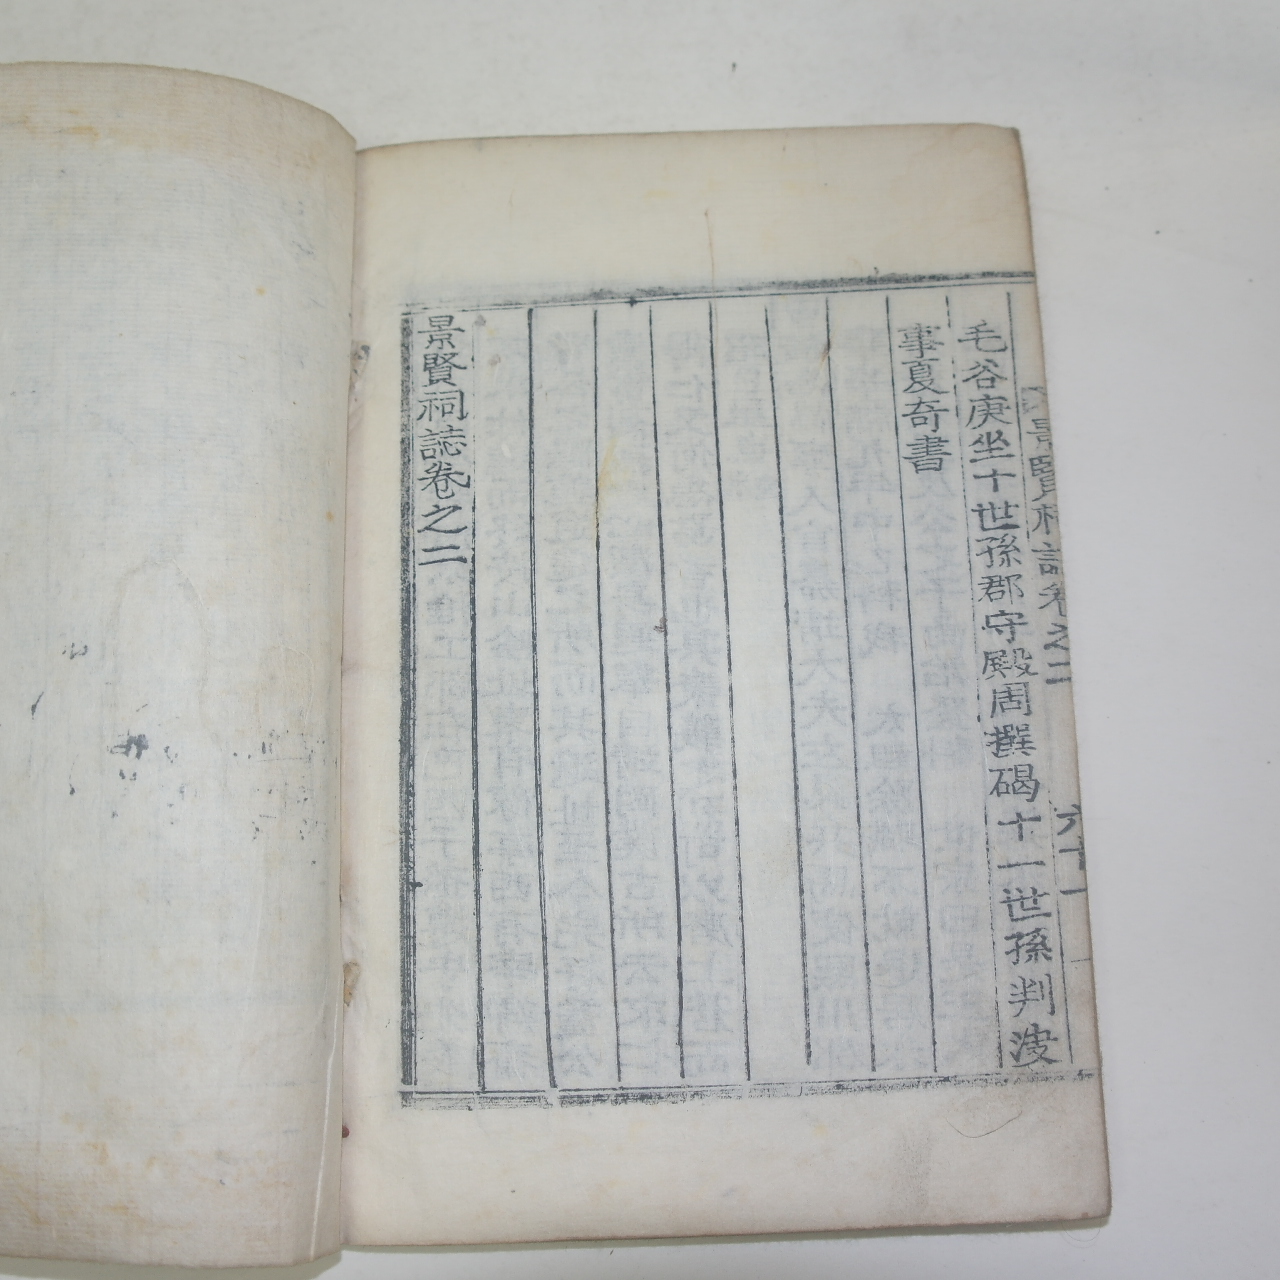 景賢祠誌卷之二
六十一
毛谷庚坐十世孫郡守殿周撰碣十一世孫判決
事夏奇書
景賢祠誌卷之二